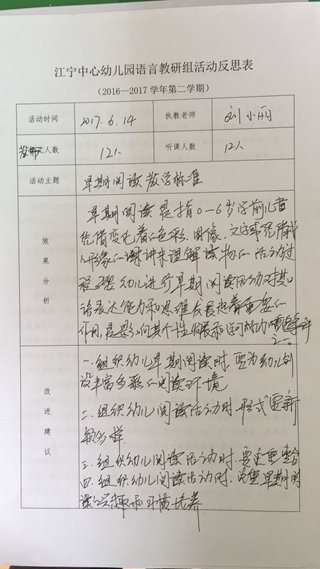 江宁中心幼儿园语言教研组活动反思表
(2016—2017学年第二学期)
活动时间 2017.6.14 执教老师 刘小丽
教师人数 12人 听课人数 12人
活动主题 早期阅读教学标准
效果分析
早期阅读是指0-6岁学前儿童
凭借变化着的色彩、图像、文字或
形象的讲来理解读物的活动过
程 幼儿进行早期阅读活动对其
语言表达能力和思维发展起着重要的
作用,是影响其个性发展和学习成功的
改进建议
一、组织幼儿早期阅读时,要为幼儿创
设丰富多彩的阅读环境
二、组织幼儿阅读活动时,形式要新
三、组织幼儿阅读活动时,要注重整合
四、组织幼儿阅读活动时,注重早期阅
读兴趣和习惯培养